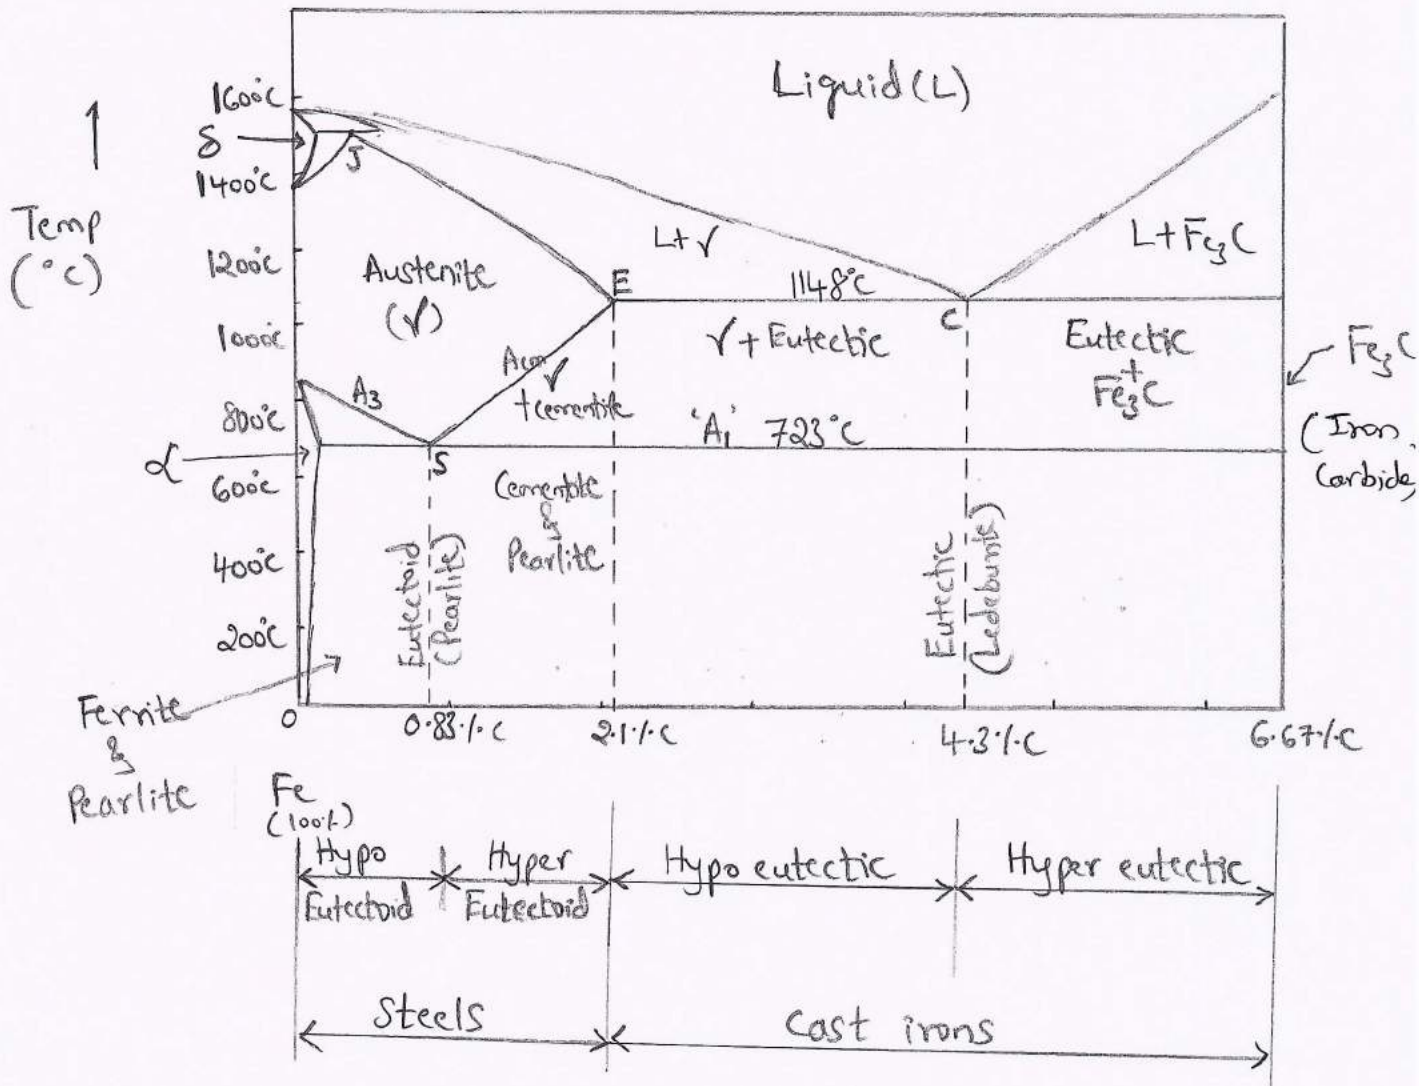 Liquid (L)
1600°C
δ
J
1400°C
Temp
(°C)
L+γ
L+Fe3C
1200°C
Austenite
(γ)
E
1148°C
C
1000°C
γ + Eutectic
Eutectic
+
Fe3C
Fe3C
(Iron
Carbide)
Acm
γ
+cementite
A3
800°C
'A1' 723°C
α
S
600°C
Cementite
&
Pearlite
400°C
Eutectoid
(Pearlite)
Eutectic
(Ledeburite)
200°C
Ferrite
&
Pearlite
0
0.83%C
2.1%C
4.3%C
6.67%C
Fe
(100%)
Hypo
Eutectoid
Hyper
Eutectoid
Hypo eutectic
Hyper eutectic
Steels
Cast irons